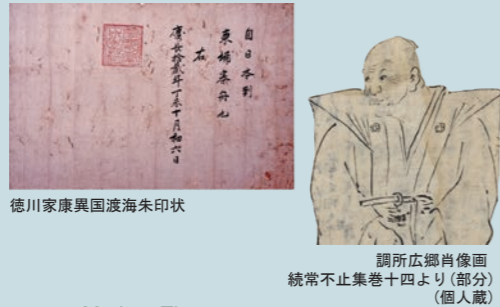 自日本到
柬埔寨舟也
右
慶長拾貳年丁未十月初六日
徳川家康異国渡海朱印状
調所広郷肖像画
続常不止集巻十四より(部分)
(個人蔵)